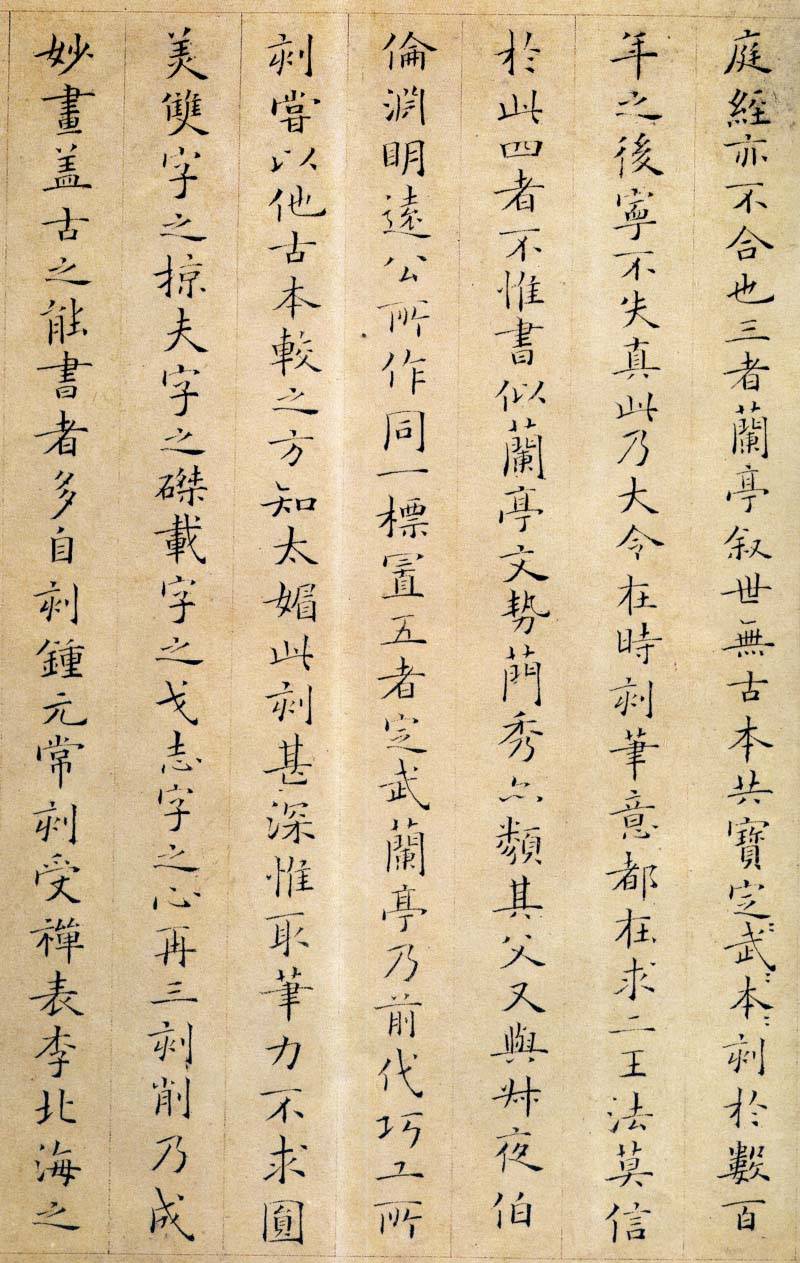 庭經亦不合也三者蘭亭叙世無古本共寶定武本定武本刻於數百
年之後寧不失真此乃大令在時刻筆意都在求二王法莫信
於此四者不惟書似蘭亭文勢蕳秀亦類其父又與叔夜伯
倫淵明遠公所作同一標置五者定武蘭亭乃前代巧工所
刻嘗以他古本較之方知太媚此刻甚深惟取筆力不求圓
美雙字之掠夫字之磔載字之戈志字之心再三刻削乃成
妙畫盖古之能書者多自刻鍾元常刻受禪表李北海之